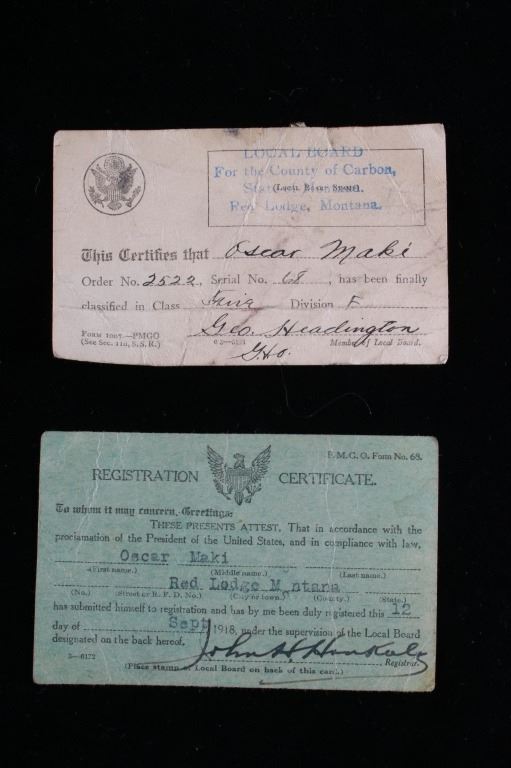 LOCAL BOARD
For the County of Carbon,
State Montana.
(Local Board Stamp)
Red Lodge, Montana.
This Certifies that Oscar Maki
Order No. 2522, Serial No. 68, has been finally
classified in Class Five Division F
Geo. Headington
Form 1007—PMGO
(See Sec. 110, S. S. R.)
Member of Local Board.
P. M. G. O. Form No. 68.
REGISTRATION CERTIFICATE.
To whom it may concern, Greetings:
THESE PRESENTS ATTEST, That in accordance with the
proclamation of the President of the United States, and in compliance with law,
Oscar Maki
(First name.) (Middle name.) (Last name.)
Red Lodge Montana
(No.) (Street or R. F. D. No.) (City or town.) (County.) (State.)
has submitted himself to registration and has by me been duly registered this 12
day of Sept 1918, under the supervision of the Local Board
designated on the back hereof.
3—6172 Registrar.
(Place stamp of Local Board on back of this card.)